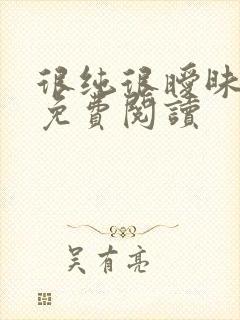 很纯很暧昧
免費閱讀
吴有亮